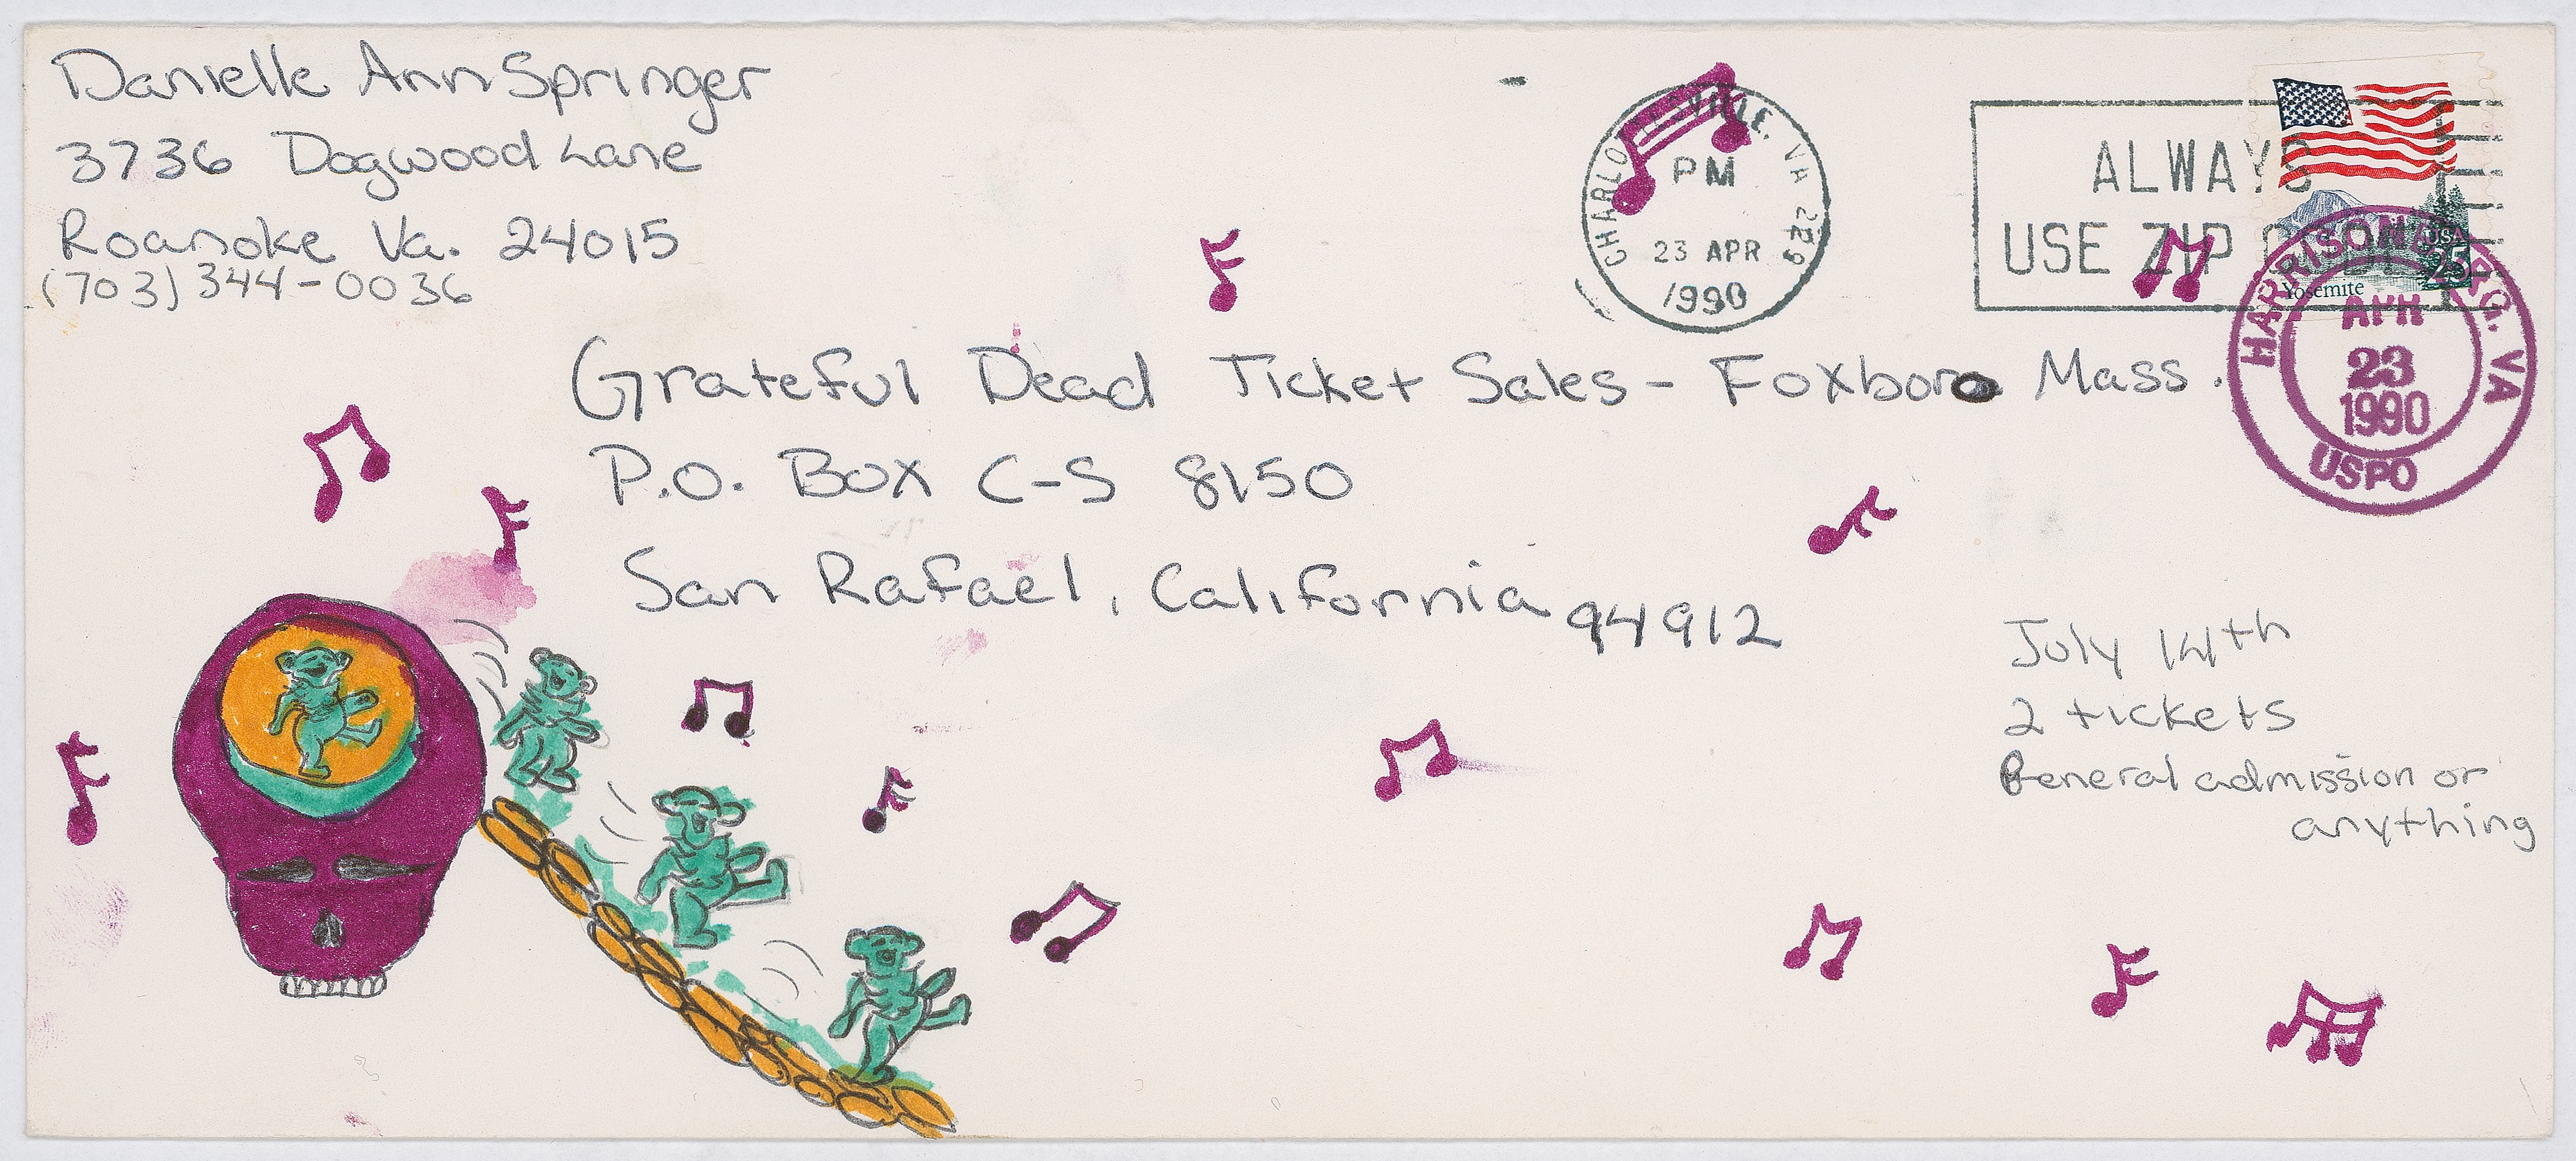 Danielle Ann Springer
3736 Dogwood Lane
Roanoke Va. 24015
(703) 344-0036
CHARLOTTESVILLE, VA 229
PM
23 APR
1990
ALWAYS
USE ZIP CODE
USA
25
Yosemite
HARRISONBURG, VA
APR
23
1990
USPO
Grateful Dead Ticket Sales - Foxboro Mass.
P.O. Box C-S 8150
San Rafael, California 94912
July 14th
2 tickets
General admission or
anything